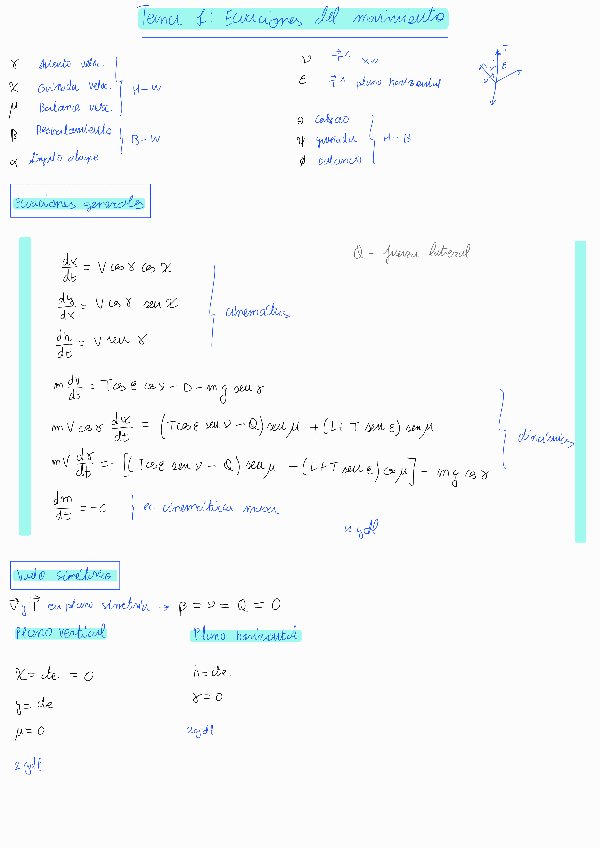 Tema 1: Ecuaciones del movimiento
γ Asiento veloc.
χ Guiñada veloc.
μ Balance veloc.
H-W
β Resbalamiento
α Ángulo ataque
B-W
ν T^ xw
ε T^ plano horizontal
T
ε
ν
θ cabeceo
ψ guiñada
φ balance
H-B
Ecuaciones generales
Q - fuerza lateral
dx/dt = V cos γ cos χ
dy/dx = V cos γ sen χ
dh/dt = V sen γ
cinemáticas
m dv/dt = T cos ε cos ν - D - mg sen γ
mV cos γ dχ/dt = (T cos ε sen ν - Q) sen μ + (L + T sen ε) sen μ
mV dγ/dt = -[(T cos ε sen ν - Q) sen μ - (L + T sen ε) cos μ] - mg cos γ
dinámicas
dm/dt = -c
ec cinemáticas masa
gdl
Vuelo simétrico
V y T en plano simetría → β = ν = Q = 0
Plano vertical
Plano horizontal
χ = cte. = 0
h = cte.
y = cte
γ = 0
μ = 0
2 gdl
2 gdl